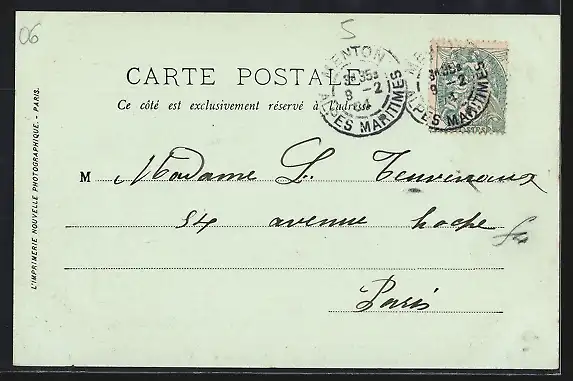 06
5
MENTON
3E 35
8 -2
ALPES MARITIMES
3E 35
8 -2
ALPES MARITIMES
CARTE POSTALE
Ce côté est exclusivement réservé à l'adresse
M Madame L.
54 avenue hoche
Paris
L'IMPRIMERIE NOUVELLE PHOTOGRAPHIQUE. - PARIS.